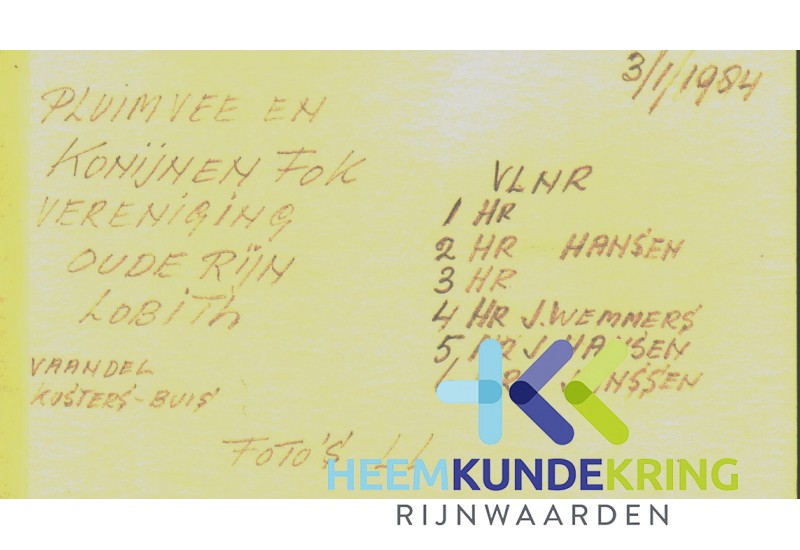 3/1/1984
PLUIMVEE EN
KONIJNEN FOK
VERENIGING
OUDE RIJN
LOBITH
VAANDEL
KOSTERS-BUIS
FOTO'S
VLNR
1 HR
2 HR HANSEN
3 HR
4 HR J.WEMMERS
5 HR J. HANSEN
JANSSEN
HEEMKUNDEKRING
RIJNWAARDEN